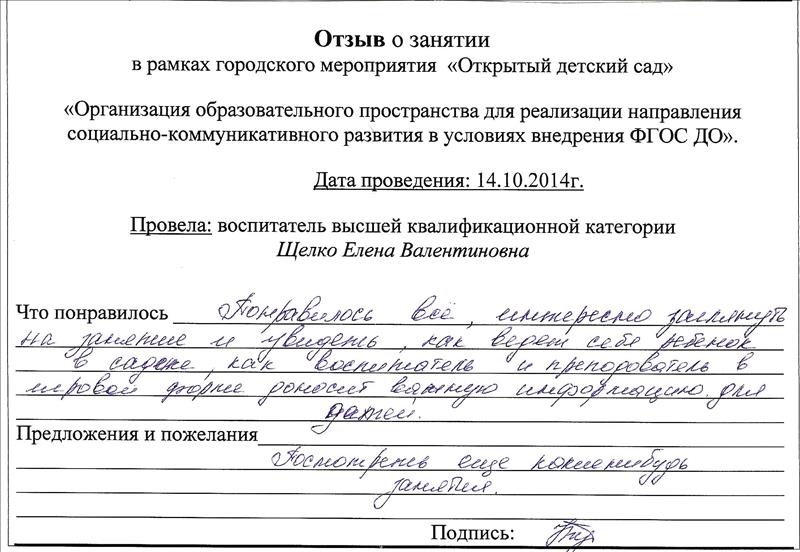 Отзыв о занятии
в рамках городского мероприятия «Открытый детский сад»
«Организация образовательного пространства для реализации направления
социально-коммуникативного развития в условиях внедрения ФГОС ДО».
Дата проведения: 14.10.2014г.
Провела: воспитатель высшей квалификационной категории
Щелко Елена Валентиновна
Что понравилось Понравилось всё, интересно заглянуть
на занятие и увидеть, как ведет себя ребенок
в садике, как воспитатель и преподователь в
игровой форме доносит важную информацию для
детей.
Предложения и пожелания
Посмотреть еще какиенибудь
занятия.
Подпись: